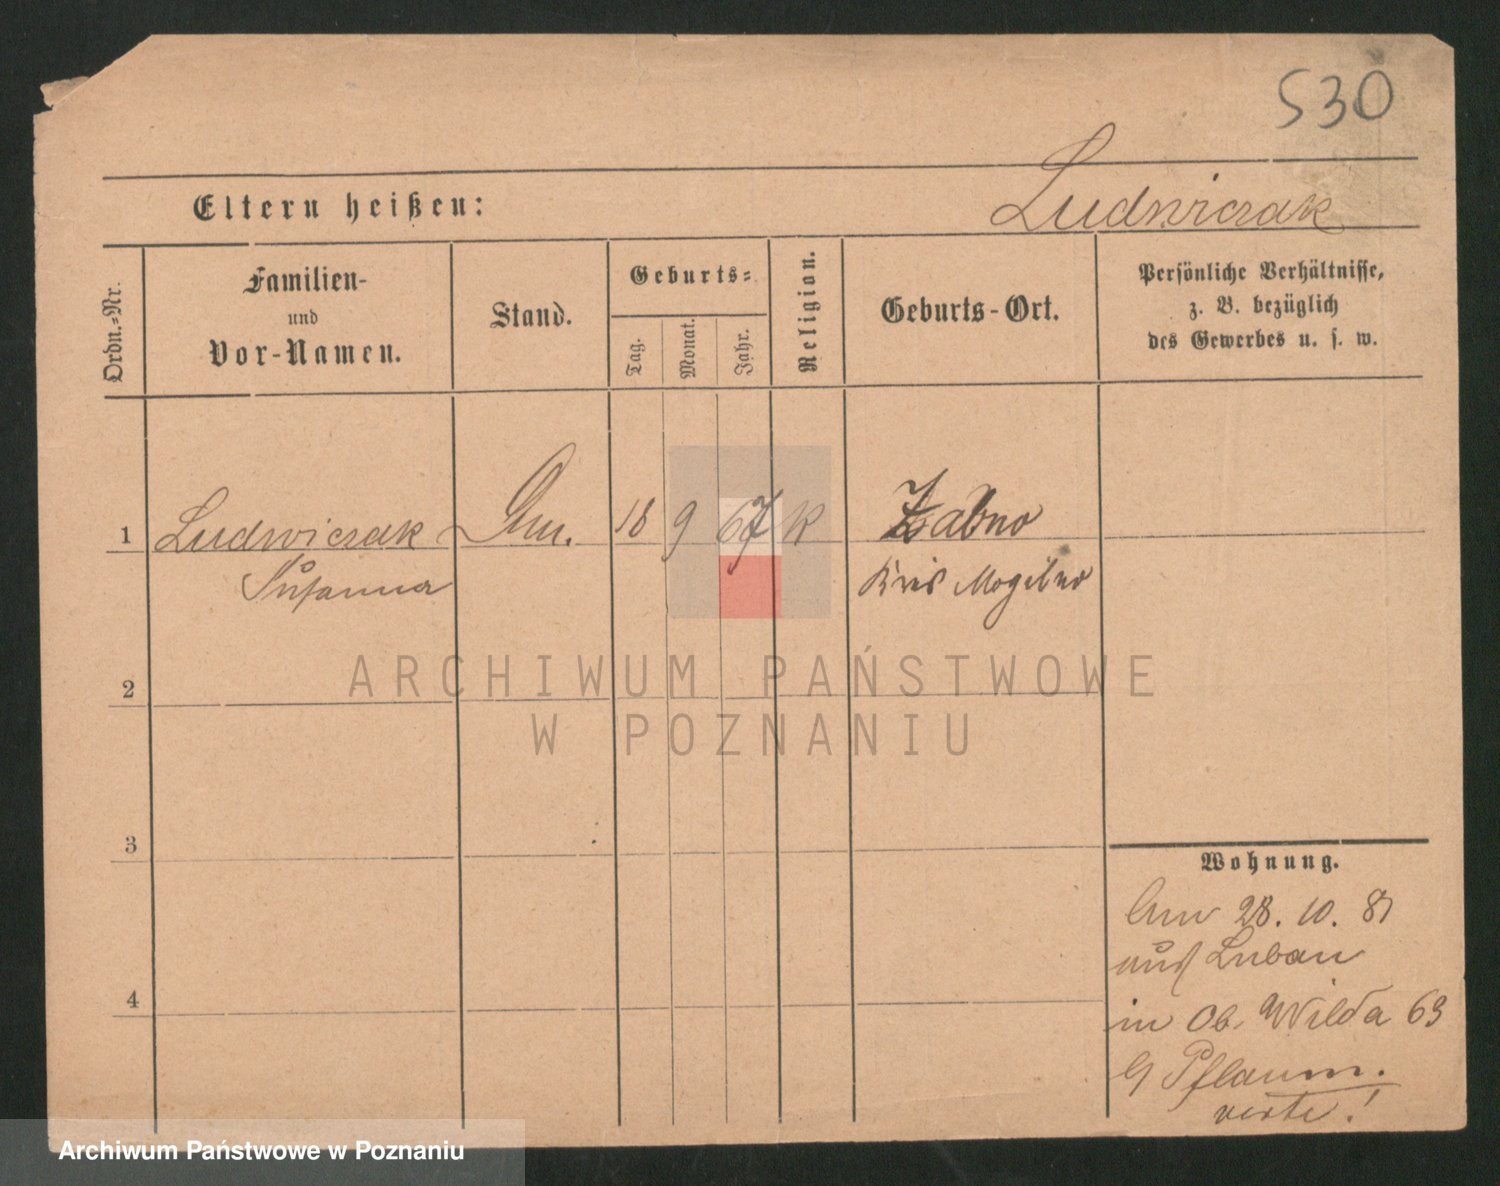 530
Eltern heißen:
Ludwiczak
Ordn.=Nr.
Familien-
und
Vor-Namen.
Stand.
Geburts=
Tag.
Monat.
Jahr.
Religion.
Geburts-Ort.
Persönliche Verhältnisse,
z. B. bezüglich
des Gewerbes u. s. w.
1 Ludwiczak 18 9 67 K Żabno
Susanna Kreis Mogilno
2
3
4
Wohnung.
28. 10. 81
aus Luban
in Ob. Wilda 63
b Pflaum.
verte!
ARCHIWUM PAŃSTWOWE
W POZNANIU
Archiwum Państwowe w Poznaniu